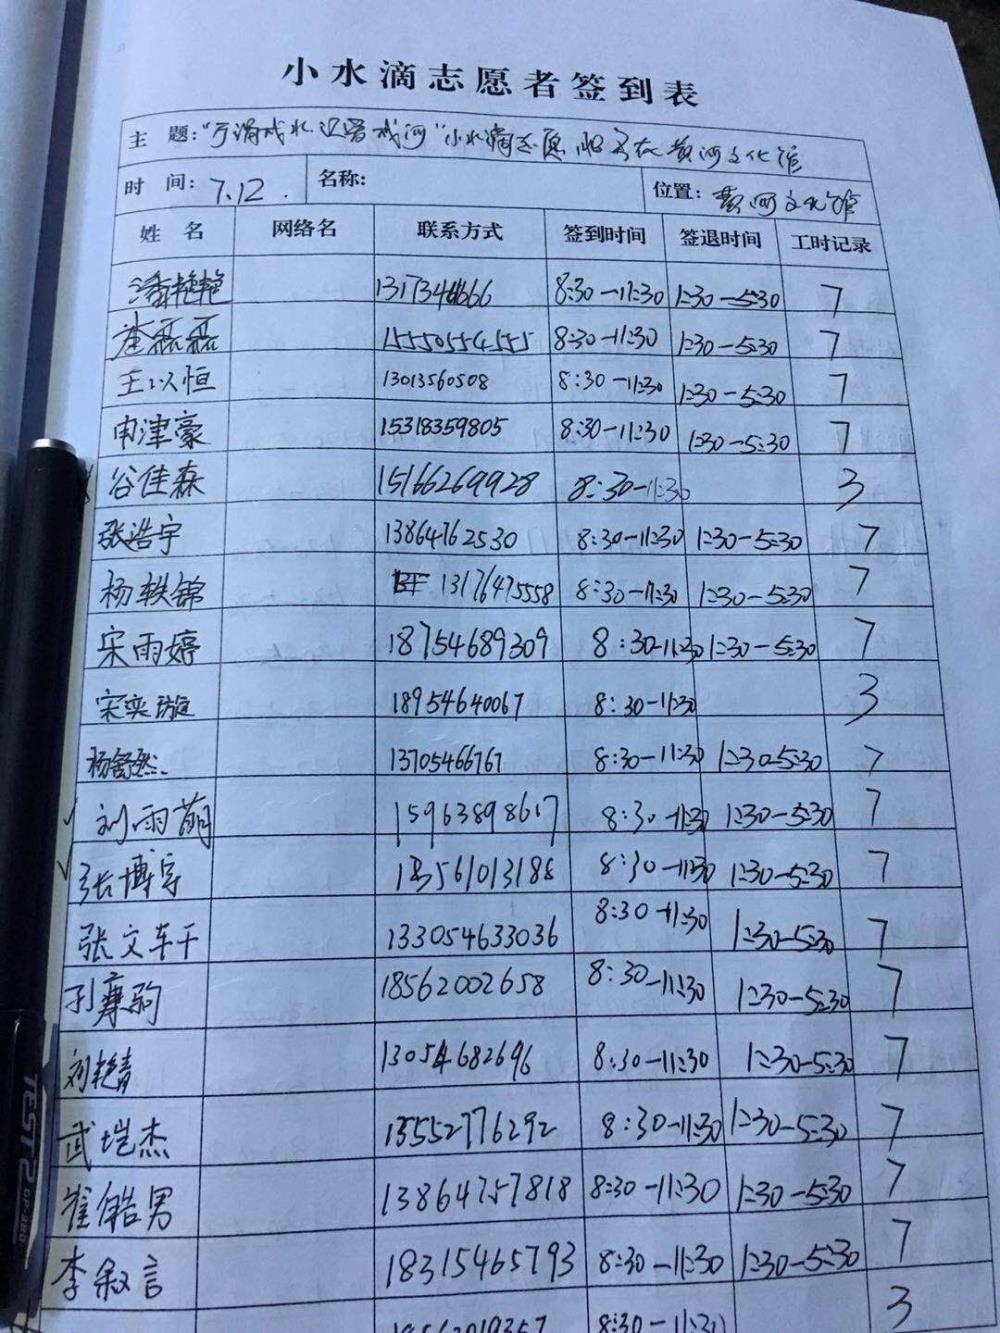 小水滴志愿者签到表
主 题:"

时 间: 7.12. 名称: 位置: 黄河文化馆
姓 名 网络名 联系方式 签到时间 签退时间 工时记录
潘艳艳 8:30-11:30 1:30-5:30 7
磊磊 15550554555 8:30-11:30 1:30-5:30 7
王以恒 13013560508 8:30-11:30 1:30-5:30 7
申津豪 15318359805 8:30-11:30 1:30-5:30 7
谷佳森 15166269928 8:30-11:30 3
张浩宇 13864762530 8:30-11:30 1:30-5:30 7
杨轶锦 13176475558 8:30-11:30 1:30-5:30 7
宋雨婷 18754689309 8:30-11:30 1:30-5:30 7
宋奕璇 18954640067 8:30-11:30 3
杨舒然 13705466767 8:30-11:30 1:30-5:30 7
刘雨萌 15963898617 8:30-11:30 1:30-5:30 7
张博宇 18561013188 8:30-11:30 1:30-5:30 7
张文 133054633036 8:30-11:30 1:30-5:30 7
18562002658 8:30-11:30 1:30-5:30 7
刘艳青 13054682696 8:30-11:30 1:30-5:30 7
武垲杰 13552776292 8:30-11:30 1:30-5:30 7
崔皓男 13864757818 8:30-11:30 1:30-5:30 7
李叙言 18315465793 8:30-11:30 1:30-5:30 7
8:30-11:30 3
TEST2
GP-380